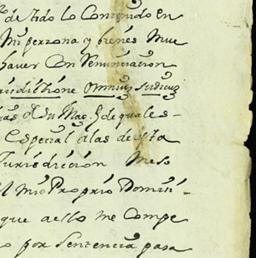 de todo lo Contenido en
Mi perzona y bienes Mue
haver Con Renunciacion
urisdictione omnium Judicum
de Su Mag.d de quales
Especial a las de esta
Jurisdicion Me so
el mio Proprio Domici
que a ello me Compe
o por Sentencia pasa